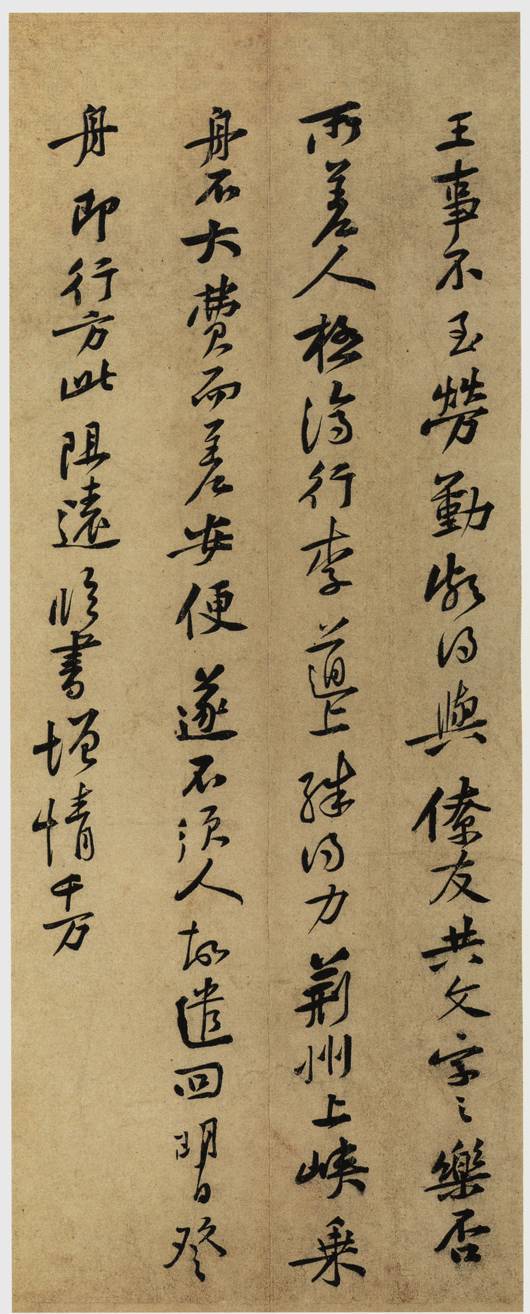 王事不至勞勤頗得與僚友共文字之樂否
所差人極濟行李道上殊得力荆州上峽乗
舟不大費而差安便遂不須人故遣回明日登
舟即行方此阻遠臨書増情千万